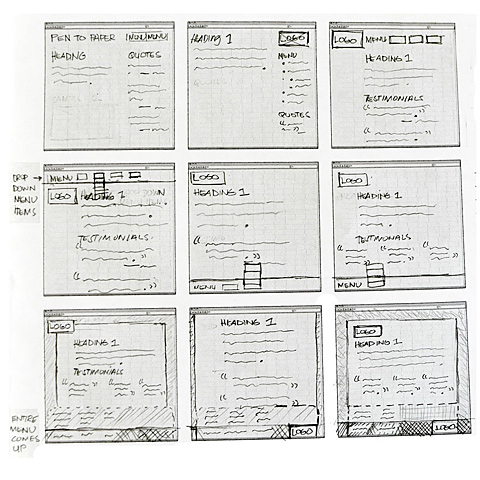 PEN TO PAPER MENU MENU
HEADING QUOTES
HEADING 1 LOGO
MENU
QUOTES
LOGO MENU
HEADING 1
TESTIMONIALS
DROP DOWN MENU ITEMS
MENU
LOGO HEADING 1 DOWN
TESTIMONIALS
LOGO
HEADING 1
MENU
LOGO
HEADING 1
TESTIMONIALS
MENU
ENTIRE MENU COMES UP
LOGO
HEADING 1
TESTIMONIALS
HEADING 1
LOGO
LOGO
HEADING 1
LOGO